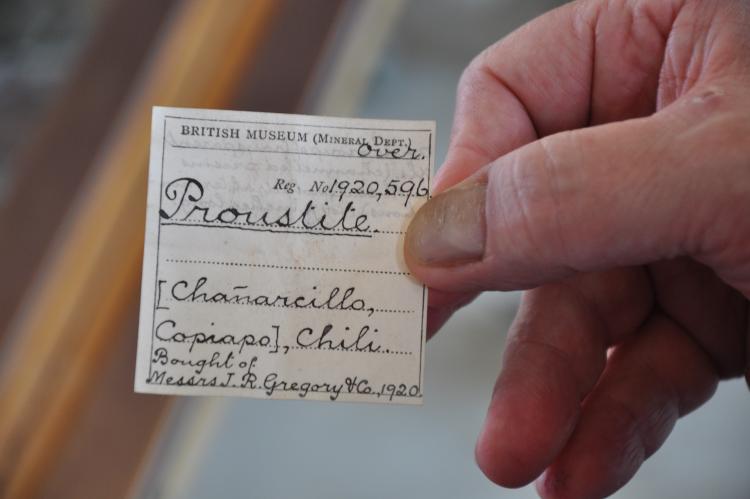 BRITISH MUSEUM (MINERAL DEPT.)
Over.
Reg No 1920,596
Proustite.
[Chañarcillo,
Copiapo], Chili.
Bought of
Messrs J. R. Gregory & Co., 1920.